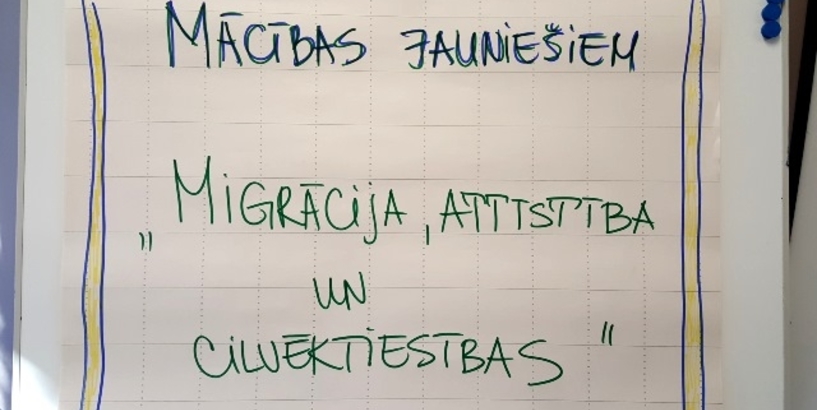 MĀCĪBAS JAUNIEŠIEM
„MIGRĀCIJA, ATTĪSTĪBA
UN
CILVĒKTIESĪBAS"